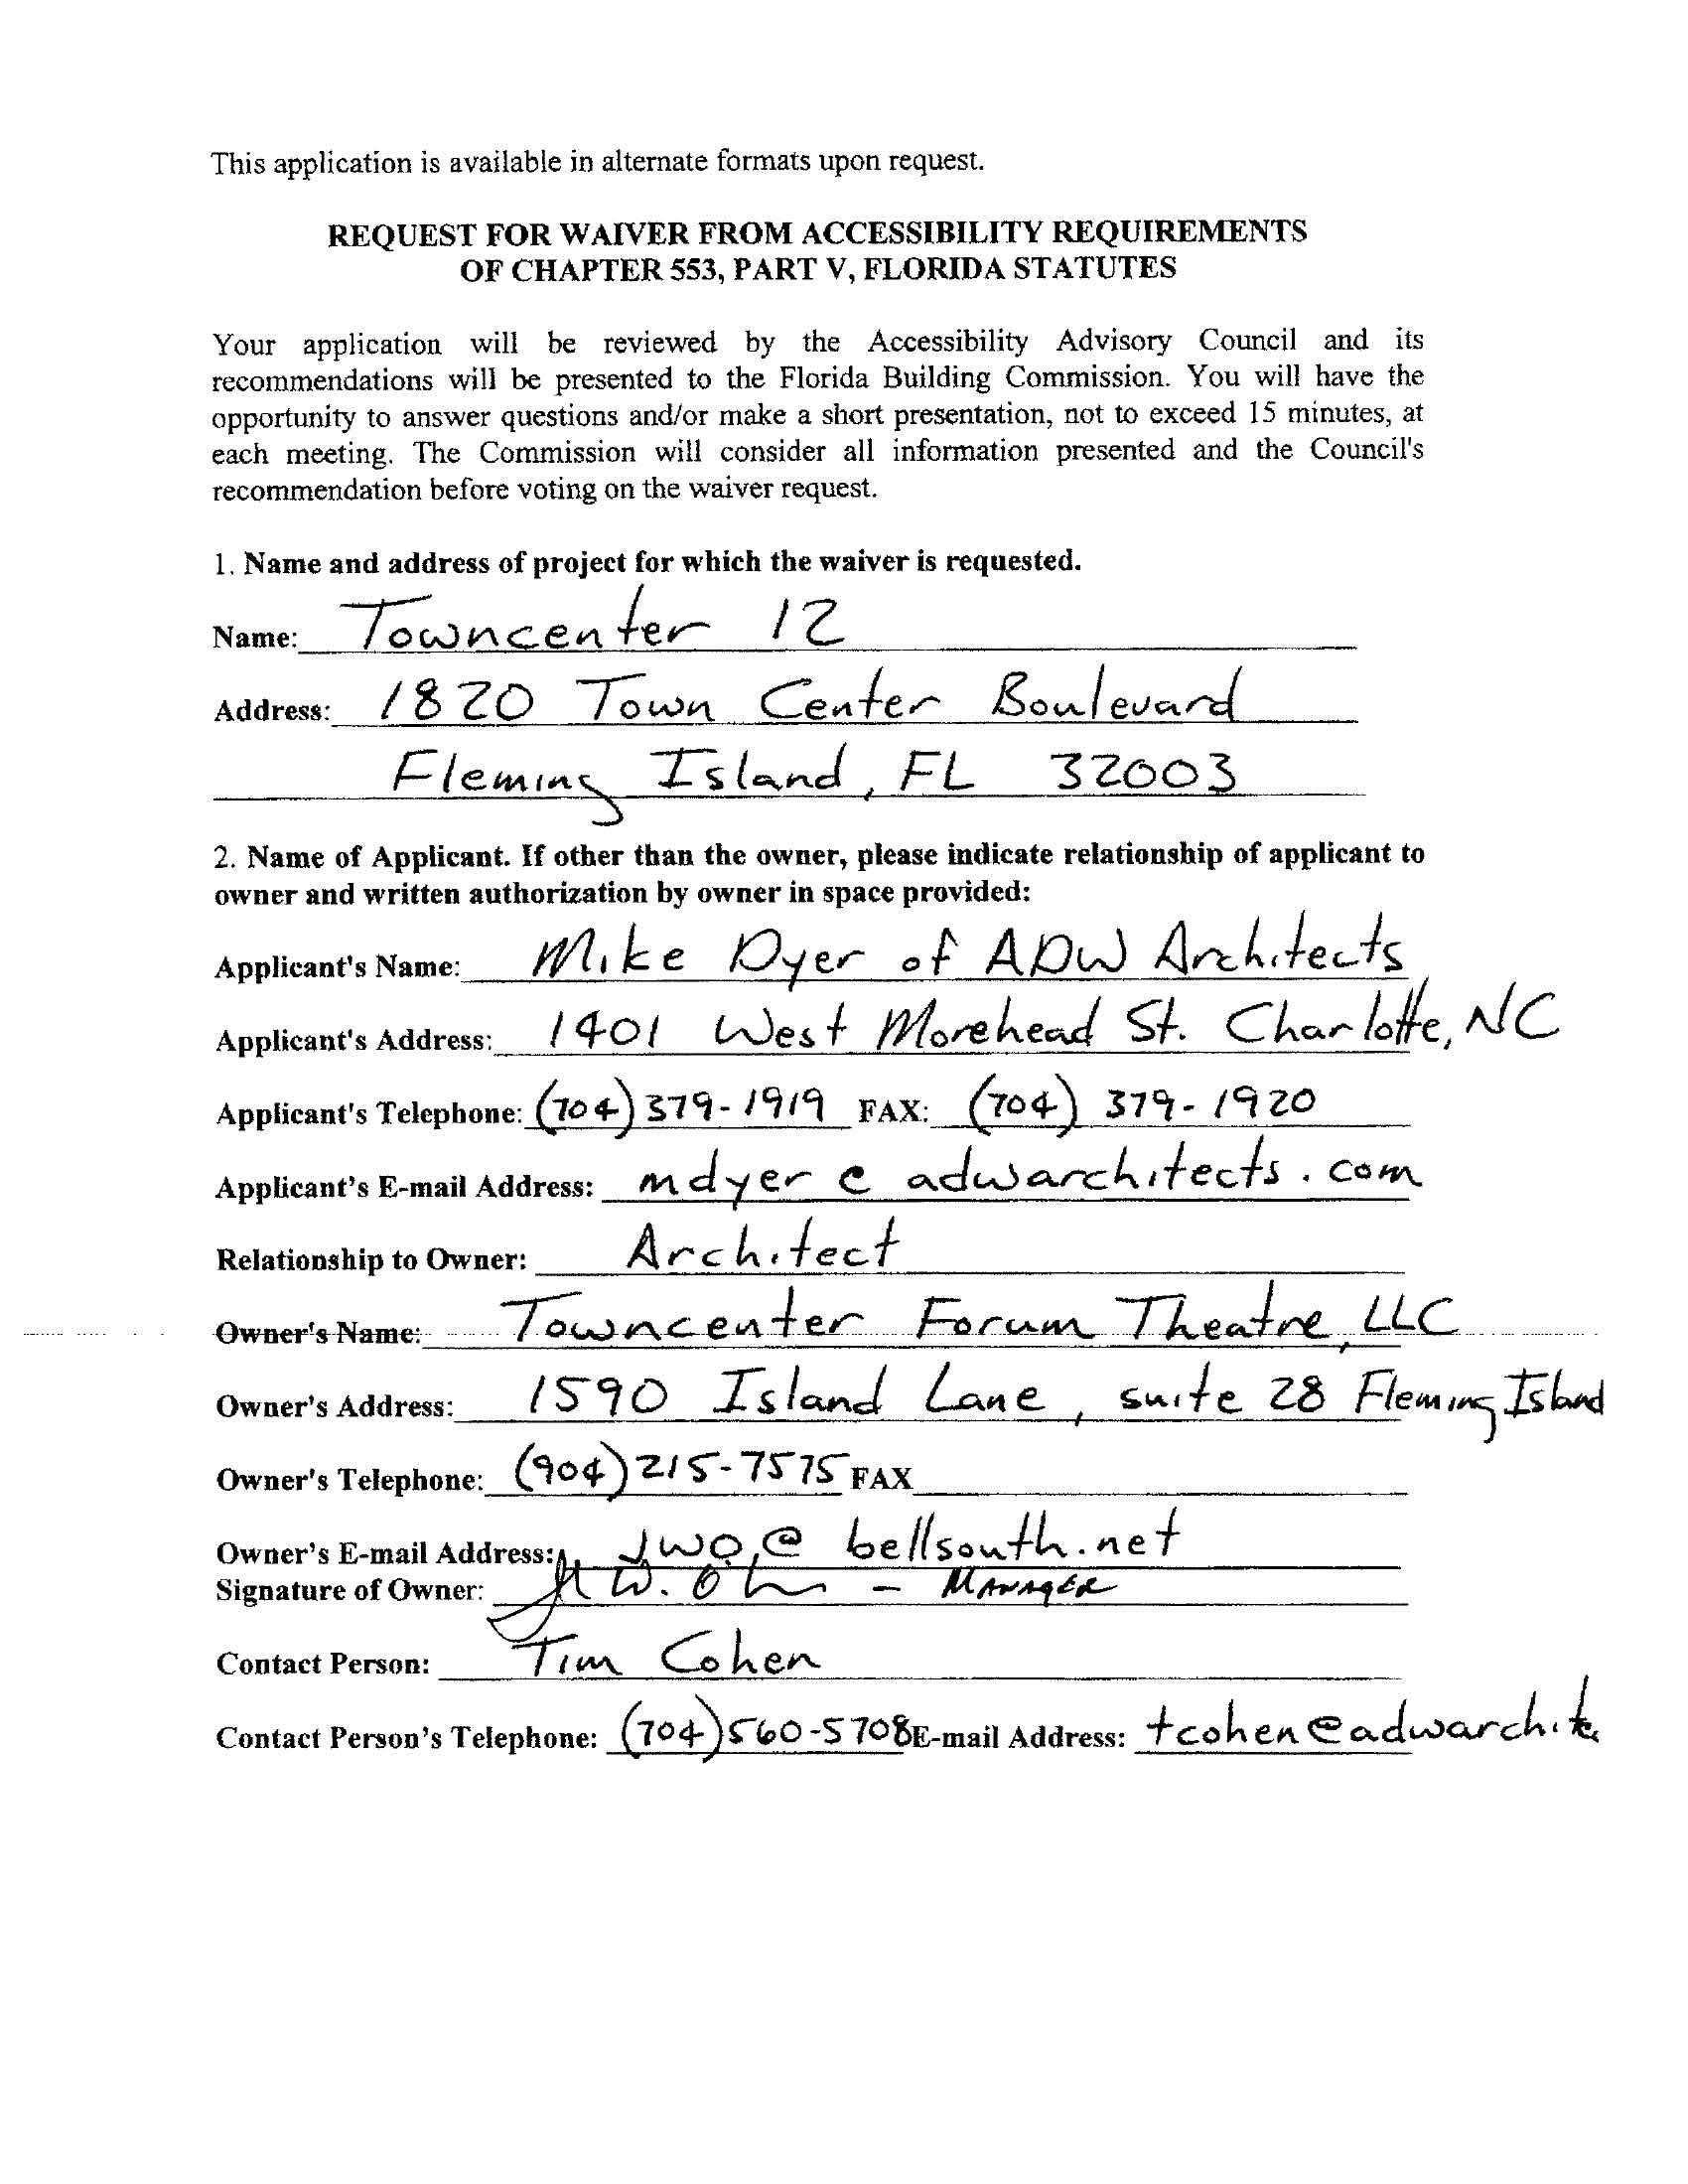 This application is available in alternate formats upon request.
REQUEST FOR WAIVER FROM ACCESSIBILITY REQUIREMENTS
OF CHAPTER 553, PART V, FLORIDA STATUTES
Your application will be reviewed by the Accessibility Advisory Council and its
recommendations will be presented to the Florida Building Commission. You will have the
opportunity to answer questions and/or make a short presentation, not to exceed 15 minutes, at
each meeting. The Commission will consider all information presented and the Council's
recommendation before voting on the waiver request.
1. Name and address of project for which the waiver is requested.
Name: Towncenter 12
Address: 1820 Town Center Boulevard
Fleming Island, FL 32003
2. Name of Applicant. If other than the owner, please indicate relationship of applicant to
owner and written authorization by owner in space provided:
Applicant's Name: Mike Dyer of ADW Architects
Applicant's Address: 1401 West Morehead St. Charlotte, NC
Applicant's Telephone: (704) 379-1919 FAX: (704) 379-1920
Applicant's E-mail Address: mdyer @ adwarchitects.com
Relationship to Owner: Architect
Owner's Name: Towncenter Forum Theatre, LLC
Owner's Address: 1590 Island Lane, suite 28 Fleming Island
Owner's Telephone: (904) 215-7575 FAX
Owner's E-mail Address: JWO@bellsouth.net
Signature of Owner: W. - MANAGER
Contact Person: Tim Cohen
Contact Person's Telephone: (704) 560-5708 E-mail Address: tcohen@adwarchite